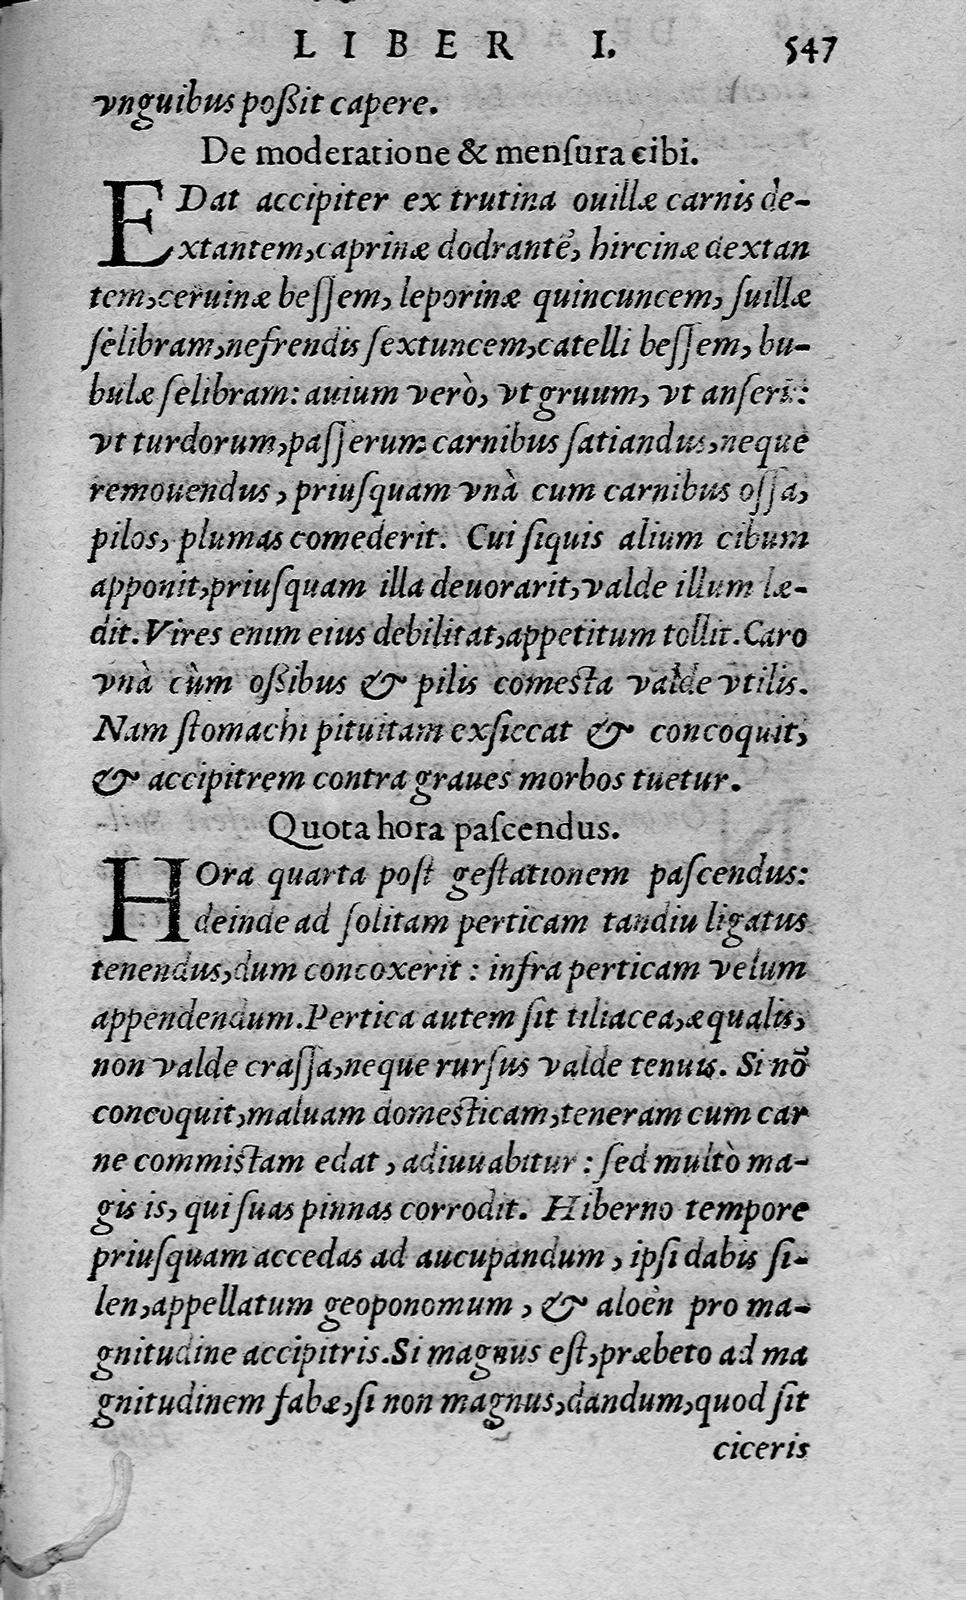 LIBER I. 547
vnguibus poßit capere.
De moderatione & menſura cibi.
EDat accipiter ex trutina ouillæ carnis de-
xtantem, caprinæ dodrantē, hircinæ dextan
tem, ceruinæ beſſem, leporinæ quincuncem, ſuillæ
ſelibram, nefrendis ſextuncem, catelli beſſem, bu-
bulæ ſelibram: auium verò, vt gruum, vt anſeris:
vt turdorum, paſſerum carnibus ſatiandus, neque
remouendus, priuſquam vnà cum carnibus oſſa,
pilos, plumas comederit. Cui ſiquis alium cibum
apponit, priuſquam illa deuorarit, valde illum læ-
dit. Vires enim eius debilitat, appetitum tollit. Caro
vnà cùm oßibus & pilis comesta valde vtilis.
Nam ſtomachi pituitam exſiccat & concoquit,
& accipitrem contra graues morbos tuetur.
Quota hora paſcendus.
HOra quarta poſt geſtationem paſcendus:
deinde ad ſolitam perticam tandiu ligatus
tenendus, dum concoxerit: infra perticam velum
appendendum. Pertica autem ſit tiliacea, æqualis,
non valde craſſa, neque rurſus valde tenuis. Si nō
concoquit, maluam domesticam, teneram cum car
ne commistam edat, adiuuabitur: ſed multò ma-
gis is, qui ſuas pinnas corrodit. Hiberno tempore
priuſquam accedas ad aucupandum, ipſi dabis ſi-
len, appellatum geoponomum, & aloën pro ma-
gnitudine accipitris. Si magnus eſt, præbeto ad ma
gnitudinem fabæ, ſi non magnus, dandum, quod ſit
ciceris